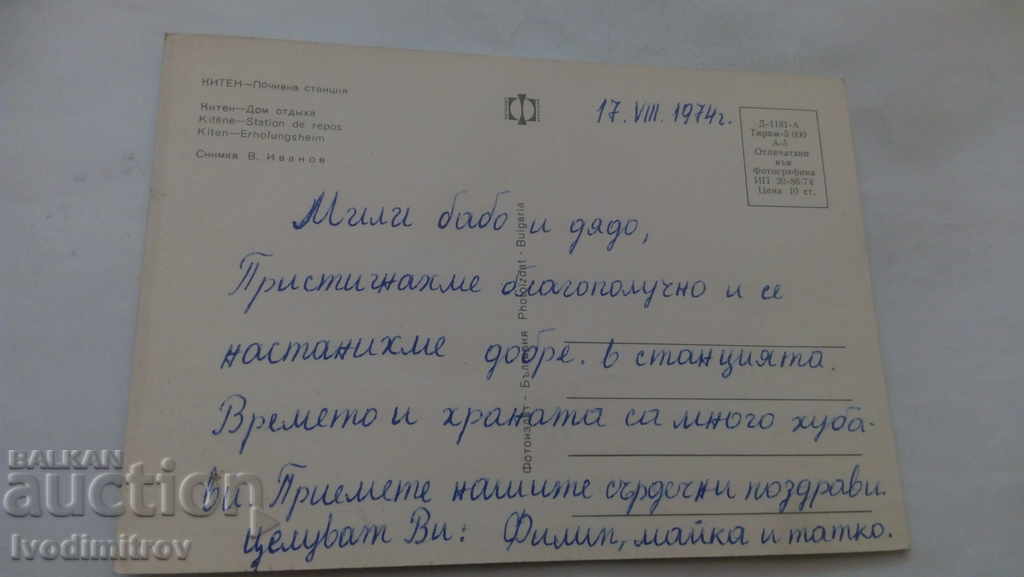 КИТЕН—Почивна станция
Китен—Дом отдыха
Kitène—Station de repos
Kiten—Erholungsheim
Снимка В. Иванов
17. VIII. 1974 г.
Д-1181-А
Тираж-5 000
А-5
Отпечатано
във
Фотографика
ИП 20-86/74
Цена 10 ст.
Мили бабо и дядо,
Пристигнахме благополучно и се
настанихме добре. в станцията.
Времето и храната са много хуба-
ви. Приемете нашите сърдечни поздрави.
Целуват Ви: Филип, майка и татко.
Фотоиздат - България Photoizdat - Bulgaria
BALKAN
auction
Ivodimitrov